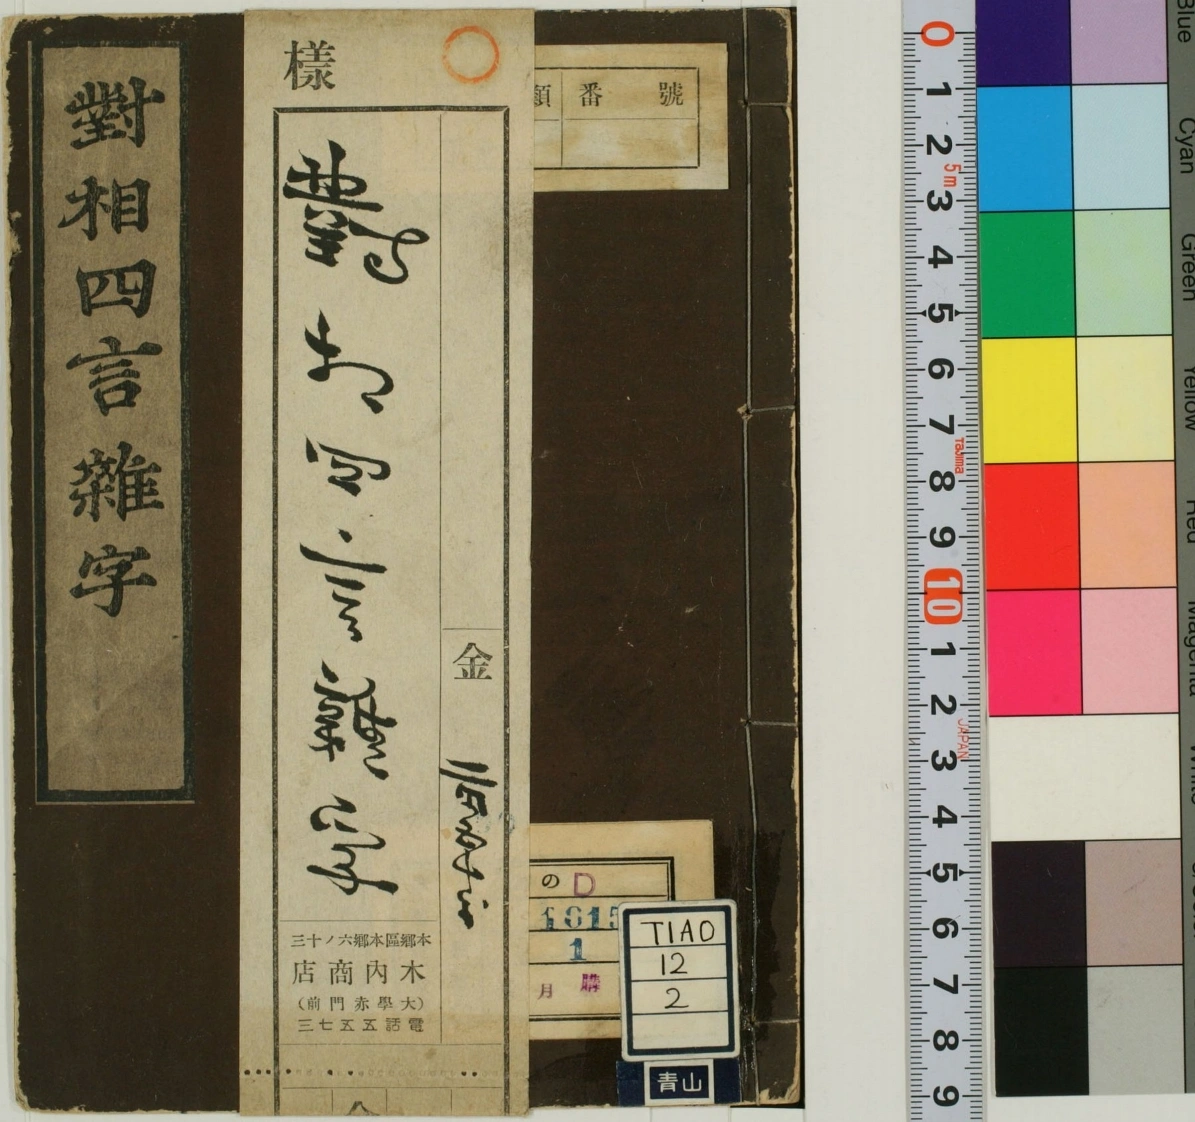 對相四言雜字
樣
對相四言雜字
金
本郷區本郷六ノ十三
木內商店
(大學赤門前)
電話五五七三
類 番 號
の D
1815
1
月 購
TIAO
12
2
青山
0
1
2
5m
3
4
5
6
7
Tajima
8
9
10
1
2
JAPAN
3
4
5
6
7
8
9
Blue
Cyan
Green
Yellow
Red
Magenta
White